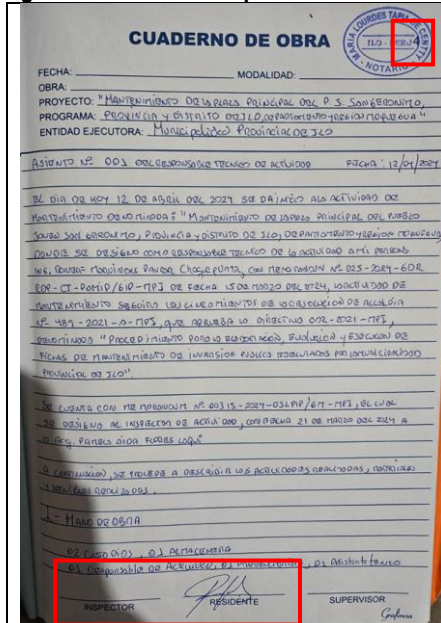 MARIA LOURDES TAPIA DE CENTTY
ILO - PERU
NOTARIO
4
CUADERNO DE OBRA
FECHA: MODALIDAD:
OBRA:
PROYECTO: "MANTENIMIENTO DE LA PLAZA PRINCIPAL DEL P. J. SAN GERONIMO,
PROGRAMA: PROVINCIA Y DISTRITO DE ILO, DEPARTAMENTO Y REGION MOQUEGUA"
ENTIDAD EJECUTORA: Municipalidad PROVINCIAL DE ILO
ASIENTO Nº 001 DEL RESPONSABLE TECNICO DE ACTIVIDAD FECHA: 12/04/2024
EL DIA DE HOY 12 DE ABRIL DEL 2024 SE DA INICIO A LA ACTIVIDAD DE
MANTENIMIENTO DENOMINADA: "MANTENIMIENTO DE LA PLAZA PRINCIPAL DEL PUEBLO
JOVEN SAN GERONIMO, PROVINCIA Y DISTRITO DE ILO, DEPARTAMENTO Y REGION MOQUEGUA
DONDE SE DESIGNO COMO RESPONSABLE TECNICO DE LA ACTIVIDAD A MI PERSONA
ING. CON MEMORANDUM Nº 025-2024-GDR
FECHA 15 DE MARZO DEL 2024, LA ACTIVIDAD DE
MANTENIMIENTO SEGUIRA LOS LINEAMIENTOS DE LA RESOLUCION DE ALCALDIA
Nº 489-2021-A-MPI, QUE APRUEBA LA DIRECTIVA 002-2021-MPI,
DENOMINADA "PROCEDIMIENTO PARA LA ELABORACION, EVALUACION Y EJECUCION DE
FICHAS DE MANTENIMIENTO DE INVERSION PUBLICA EJECUTADOS POR LA MUNICIPALIDAD
PROVINCIAL DE ILO".
SE CUENTA CON MEMORANDUM Nº 00315-2024-OSLPIP/GM-MPI, EL CUAL
SE DESIGNO AL INSPECTOR DE ACTIVIDAD, CON FECHA 21 DE MARZO DEL 2024 A
LA ARQ. PAMELA FLORES
A CONTINUACION, SE PROCEDE A DESCRIBIR LAS ACTIVIDADES REALIZADAS, MATERIALES
Y SERVICIOS REALIZADOS.
1.- MANO DE OBRA
02 CUSTODIOS, 01 ALMACENERA
01 Responsable DE Actividad, 01 , 01 Asistente tecnico
INSPECTOR RESIDENTE SUPERVISOR